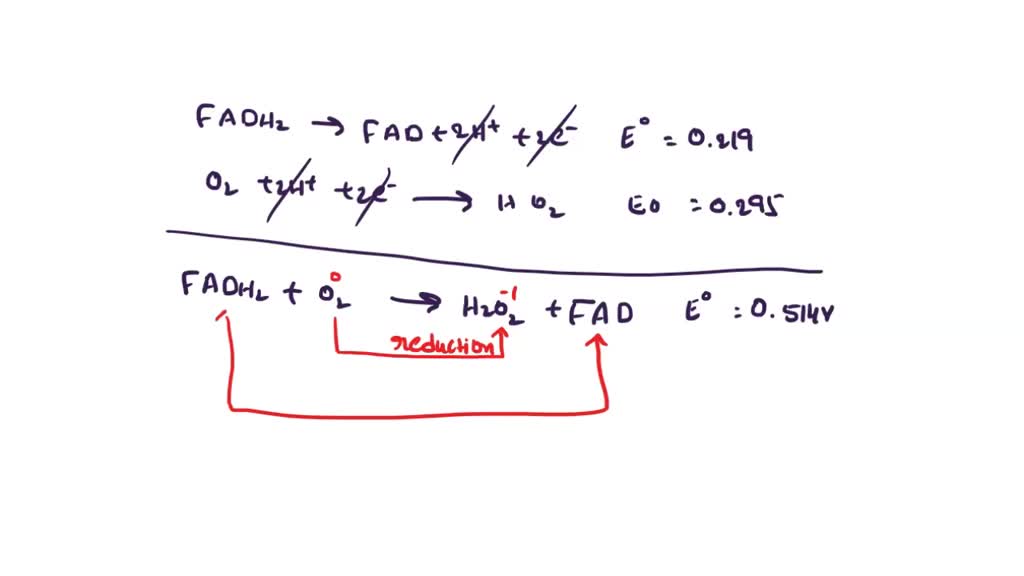 FADH₂ → FAD + 2H⁺ + 2e⁻ E° = 0.219
O₂ + 2H⁺ + 2e⁻ → H O₂ E0 = 0.295
FADH₂ + O₂⁰ → H₂O₂⁻¹ + FAD E° = 0.514V
reduction